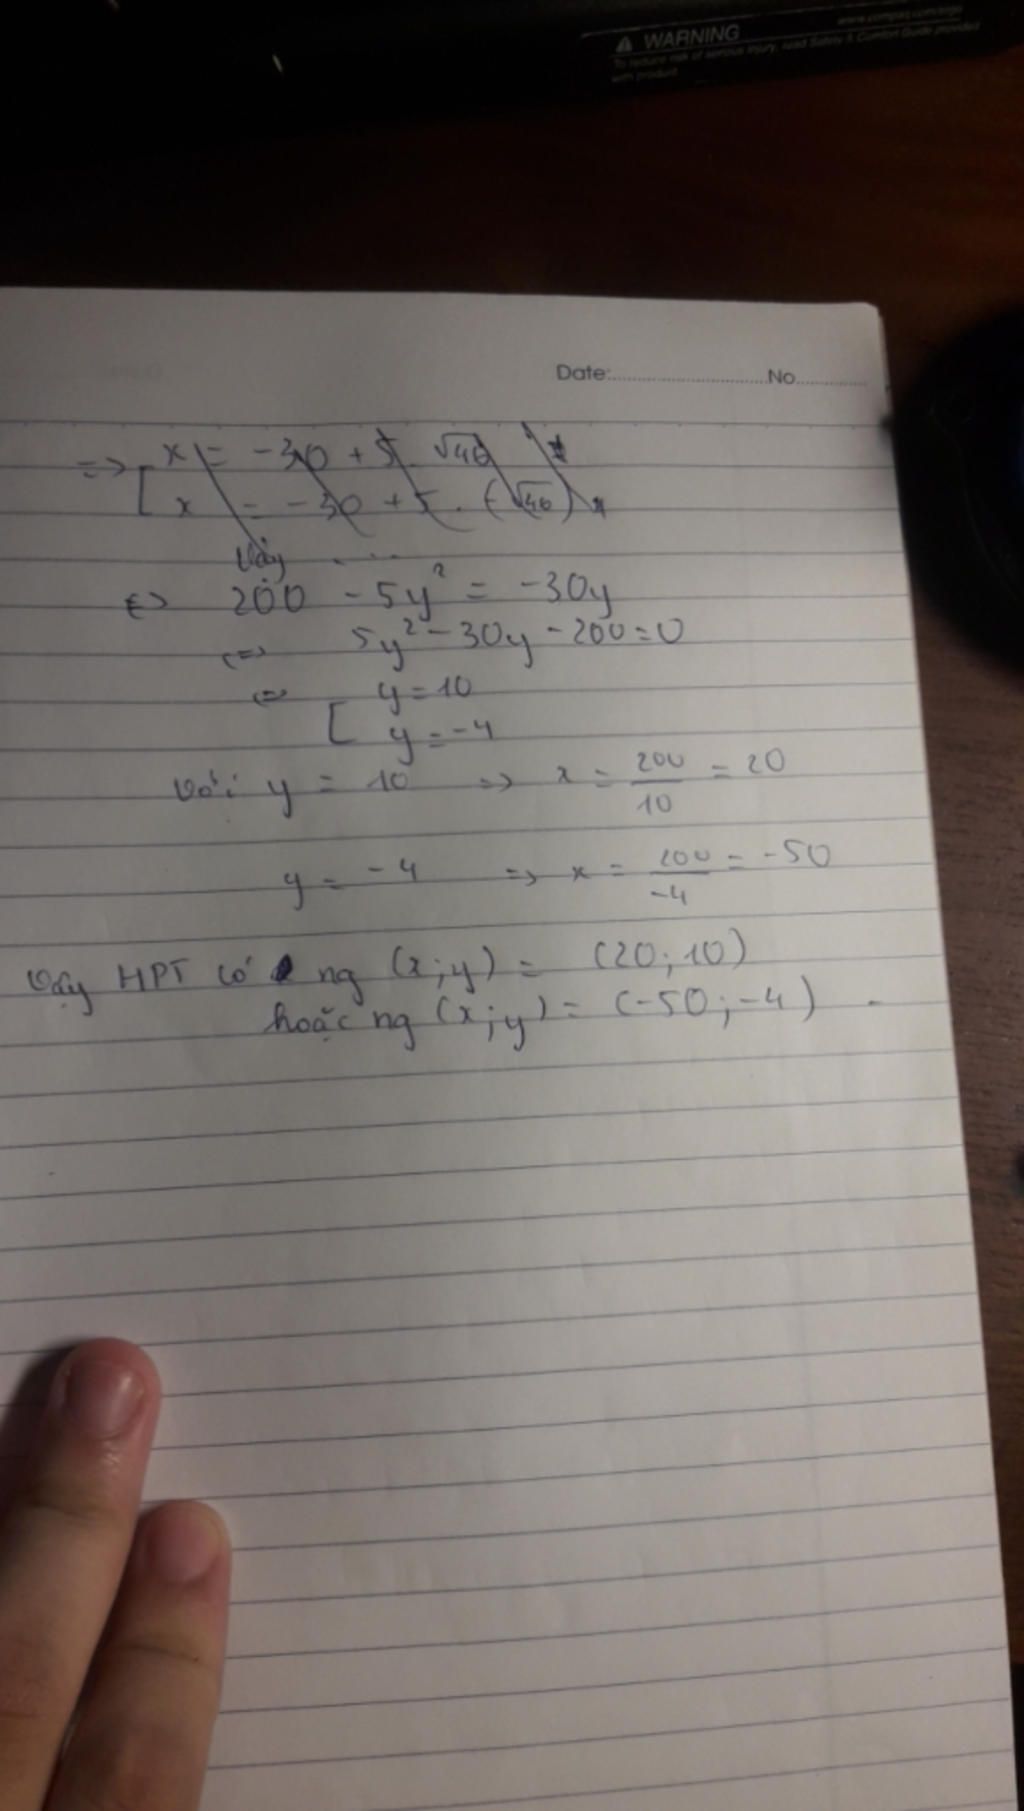 WARNING
To reduce risk of serious injury, read Safety & Comfort Guide provided
with product
Date: No
=> [ x = -30 + 5. √46
x = -30 + 5. (-√46)
Vậy ...
<=> 200 - 5y² = -30y
<=> 5y² - 30y - 200 = 0
<=> [ y = 10
y = -4
Với y = 10 => x = 200/10 = 20
y = -4 => x = 200/-4 = -50
Vậy HPT có ng (x;y) = (20;10)
hoặc ng (x;y) = (-50;-4)